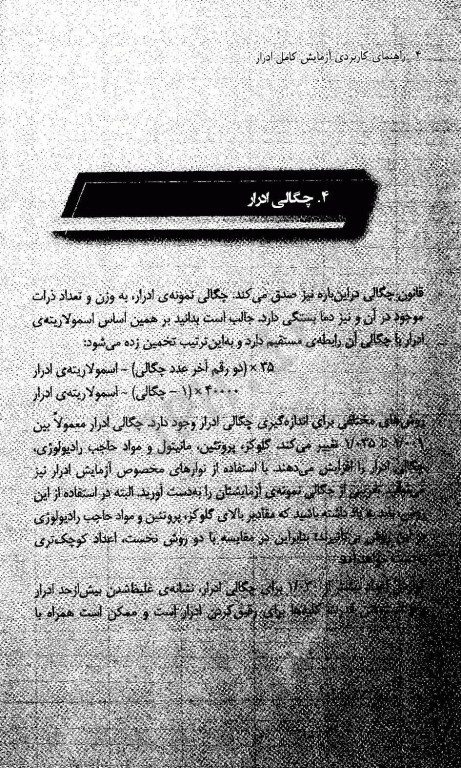 ۴ راهنمای کاربردی آزمایش کامل ادرار
۴. چگالی ادرار
قانون چگالی دراین‌باره نیز صدق می‌کند. چگالی نمونه‌ی ادرار، به وزن و تعداد ذرات
موجود در آن و نیز دما بستگی دارد. جالب است بدانید بر همین اساس اسمولاریته‌ی
ادرار با چگالی آن رابطه‌ی مستقیم دارد و به‌این‌ترتیب تخمین زده می‌شود:
۳۵ × (دو رقم آخر عدد چگالی) ~ اسمولاریته‌ی ادرار
۴۰۰۰۰ × (۱ – چگالی) ~ اسمولاریته‌ی ادرار
روش‌های مختلفی برای اندازه‌گیری چگالی ادرار وجود دارد. چگالی ادرار معمولاً بین
۱/۰۰۱ تا ۱/۰۳۵ تغییر می‌کند. گلوکز، پروتئین، مانیتول و مواد حاجب رادیولوژی،
چگالی ادرار را افزایش می‌دهند. با استفاده از نوارهای مخصوص آزمایش ادرار نیز
می‌توانید تقریبی از چگالی نمونه‌ی آزمایشتان را به‌دست آورید. البته در استفاده از این
روش، باید به یاد داشته باشید که مقادیر بالای گلوکز، پروتئین و مواد حاجب رادیولوژی
در این روش بی‌تأثیرند؛ بنابراین در مقایسه با دو روش نخست، اعداد کوچک‌تری
به‌دست خواهد آمد.
اعداد بیشتر از ۱/۰۳۰ برای چگالی ادرار، نشانه‌ی غلیظ‌شدن بیش‌ازحد ادرار
کلیه‌ها برای رقیق‌کردن ادرار است و ممکن است همراه با